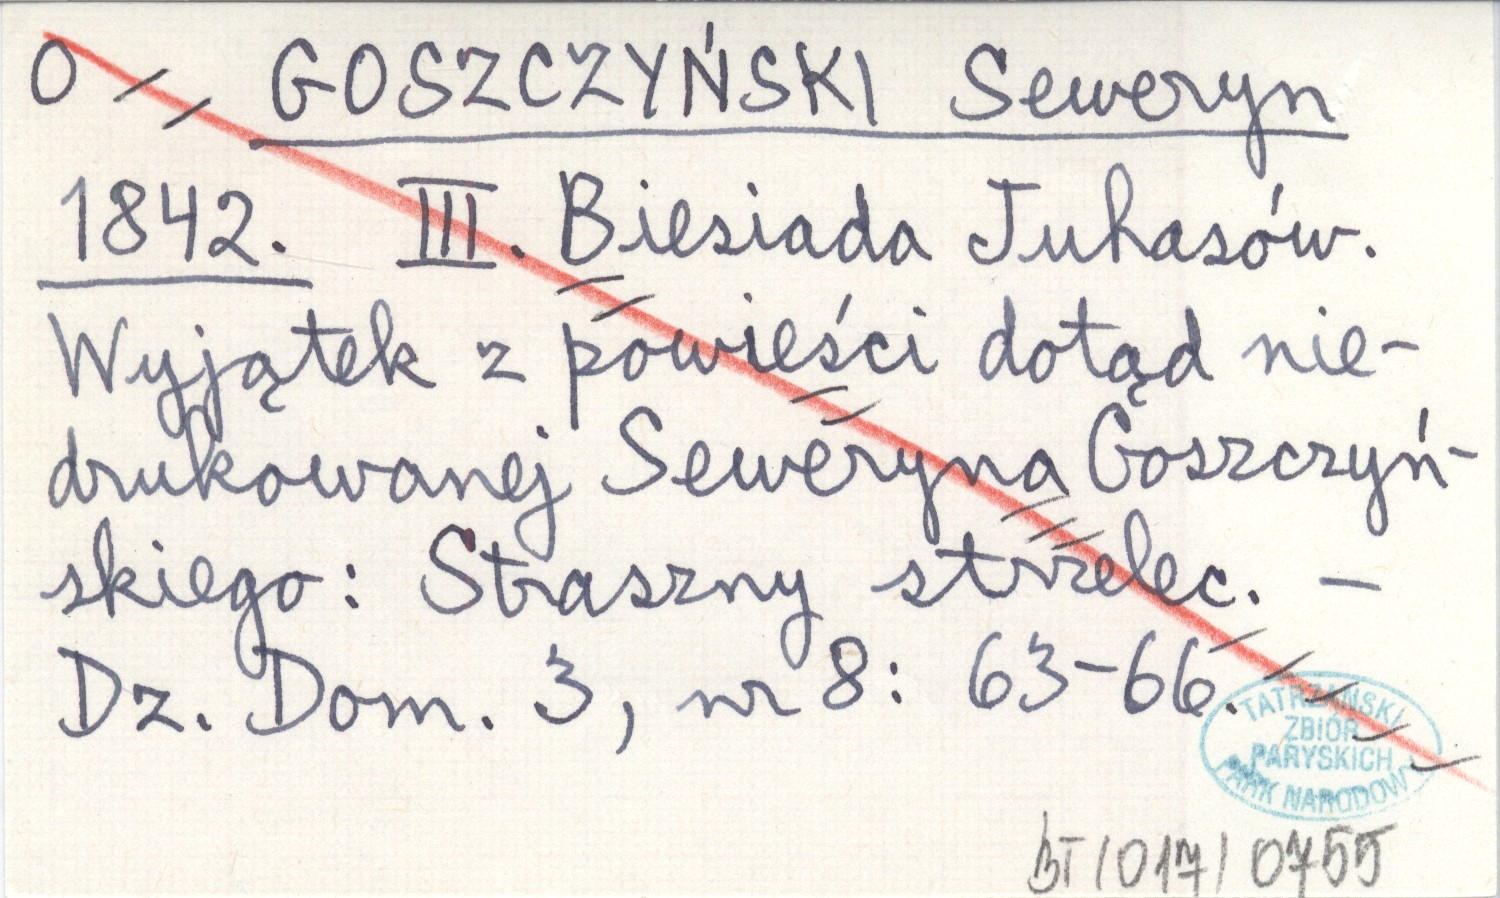 O GOSZCZYŃSKI Seweryn
1842. III. Biesiada Juhasów.
Wyjątek z powieści dotąd nie-
drukowanej Seweryna Goszczyń-
skiego: Straszny strzelec. –
Dz. Dom. 3, nr 8: 63-66.
TATRZAŃSKI
ZBIÓR
PARYSKICH
PARK NARODOWY
BT/017/0755